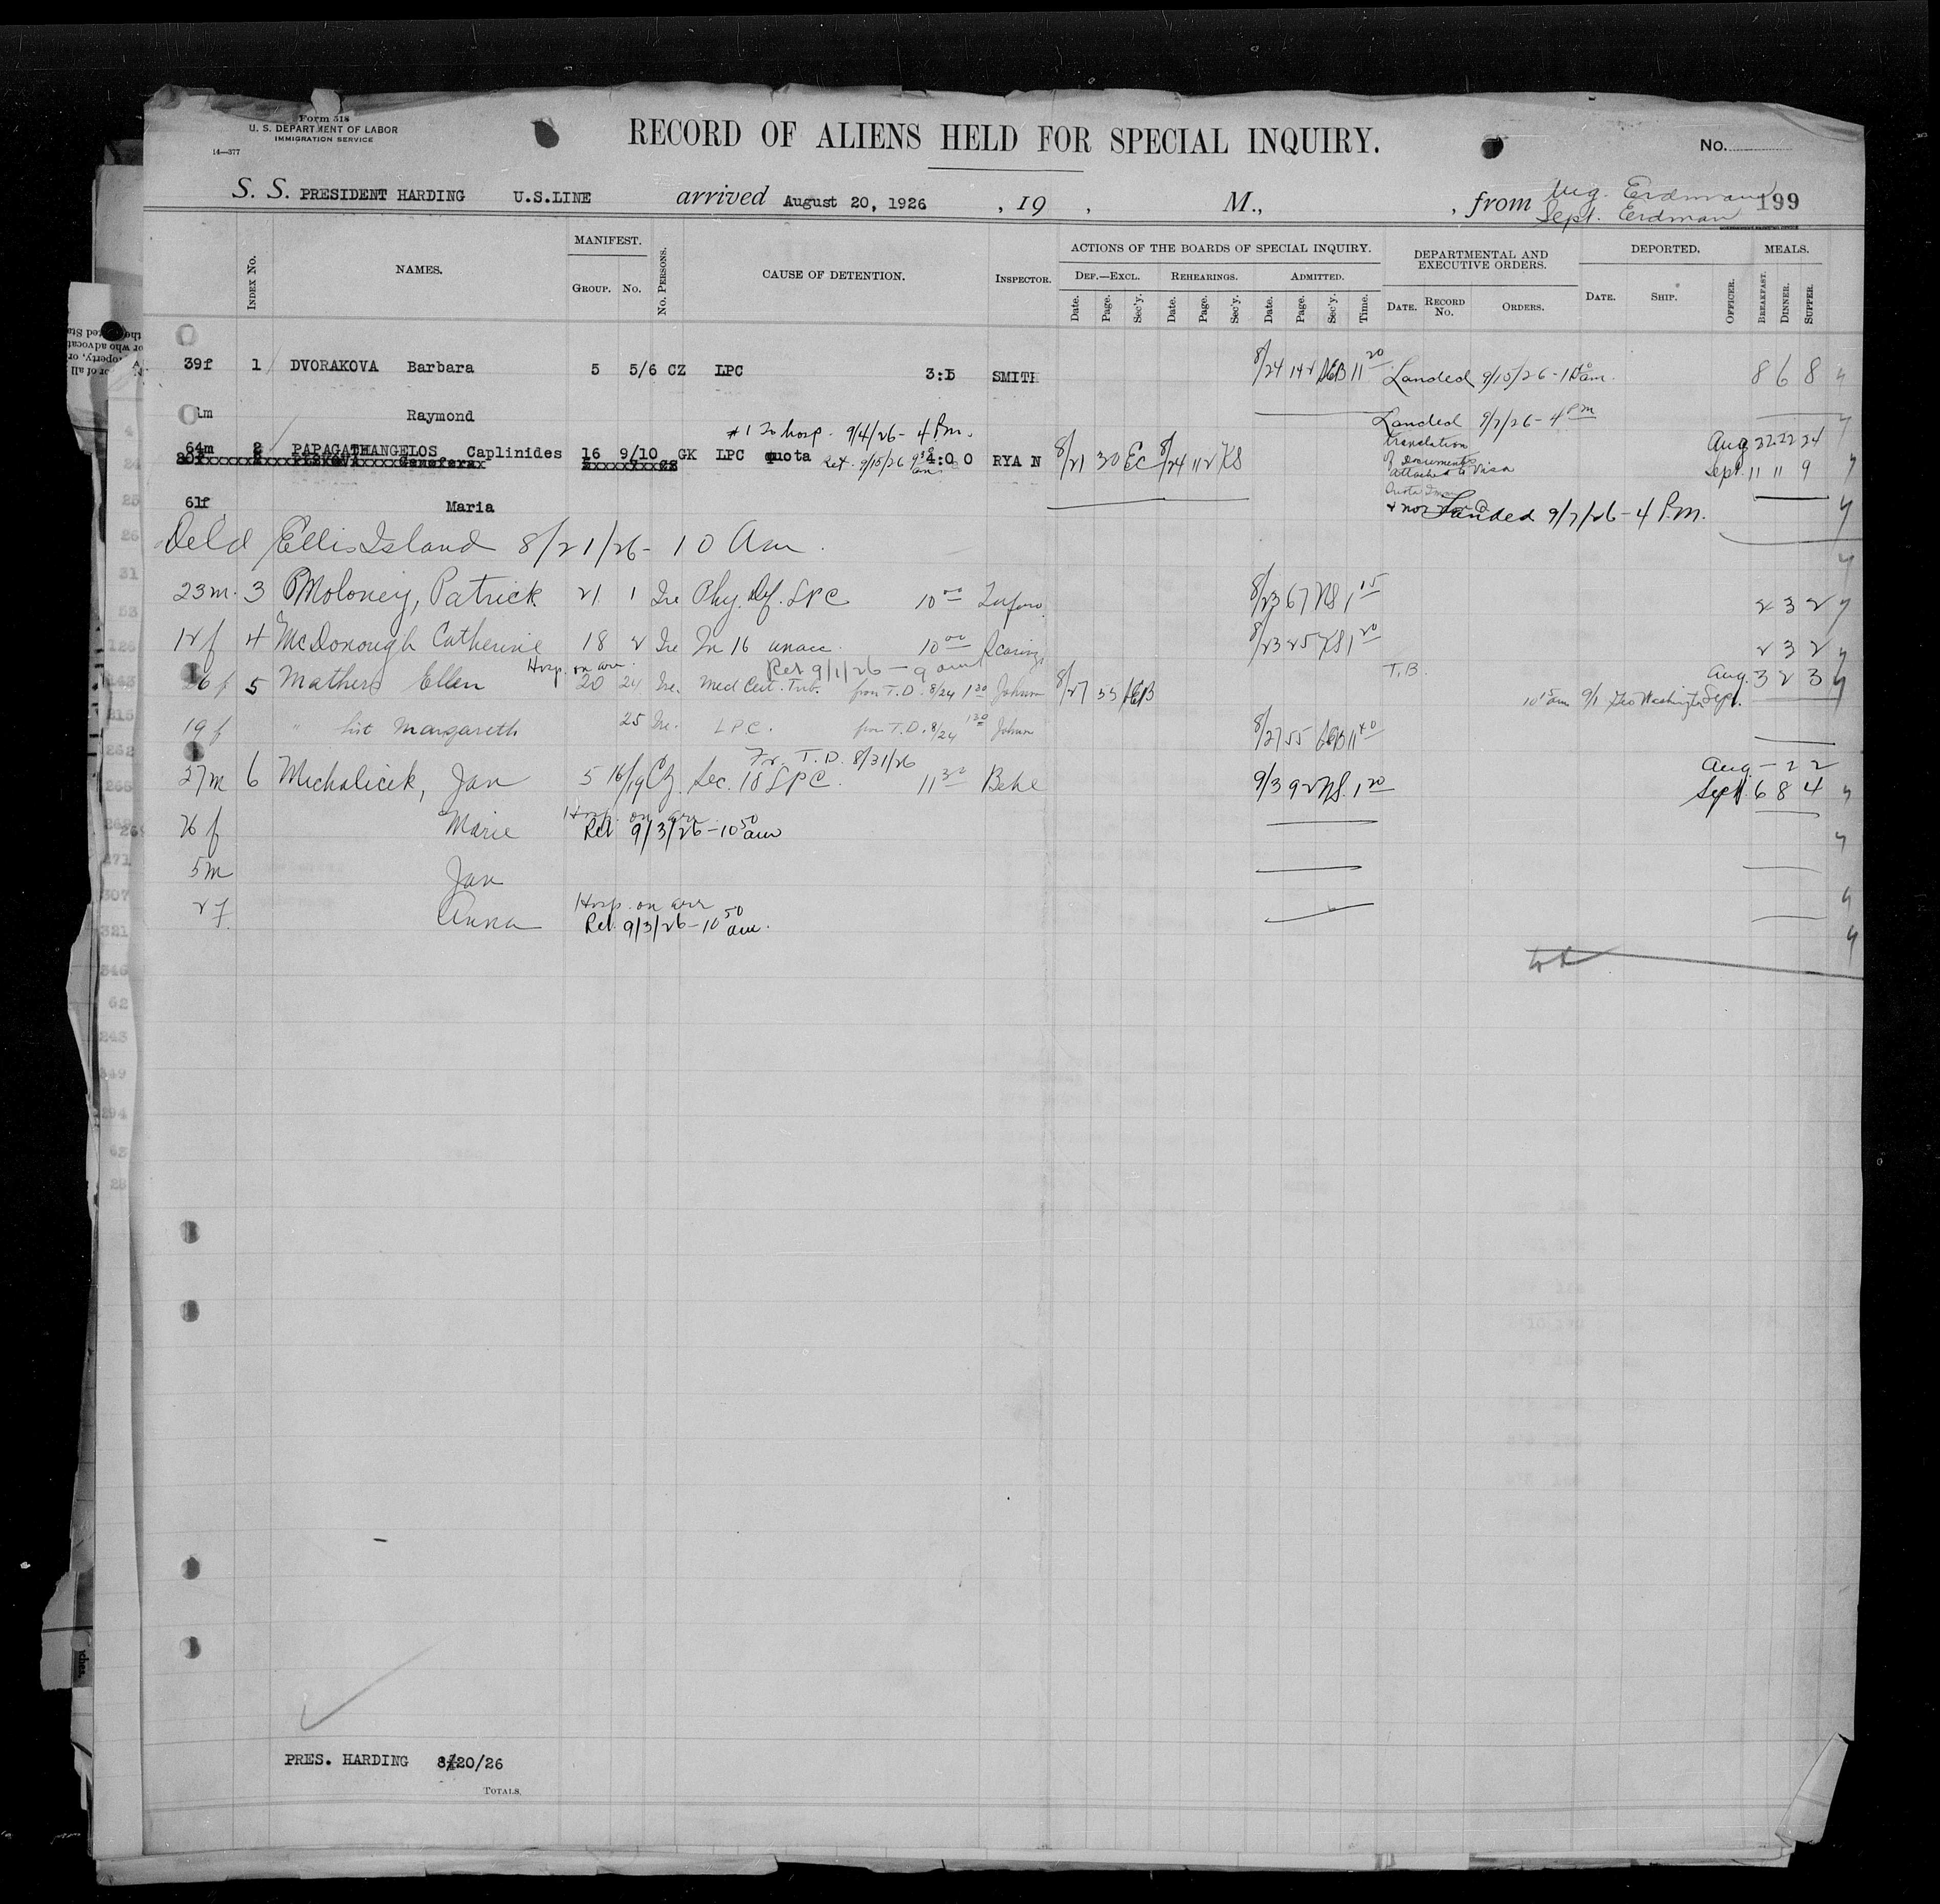 Form 518
U. S. DEPARTMENT OF LABOR
IMMIGRATION SERVICE
14—377
RECORD OF ALIENS HELD FOR SPECIAL INQUIRY.
No.
S. S. PRESIDENT HARDING U.S.LINE arrived August 20, 1926 , 19 , M., , from Aug. Erdmann 199
Sept. Erdman
INDEX No. NAMES. MANIFEST. GROUP. No. No. PERSONS. CAUSE OF DETENTION. INSPECTOR.
ACTIONS OF THE BOARDS OF SPECIAL INQUIRY. DEF.—EXCL. REHEARINGS. ADMITTED.
Date. Page. Sec'y. Date. Page. Sec'y. Date. Page. Sec'y. Time.
DEPARTMENTAL AND EXECUTIVE ORDERS. DATE. RECORD No. ORDERS.
DEPORTED. DATE. SHIP. OFFICER.
MEALS. BREAKFAST. DINNER. SUPPER.
39f 1 DVORAKOVA Barbara 5 5/6 CZ LPC 3:15 SMITH 8/24 11 20 Landed 9/15/26 8 6 8
Raymond Landed 9/7/26 - 4 PM
#1 To hosp. 9/4/26 - 4 P.M.
64m 2 PAPAGATHANGELOS Caplinides 16 9/10 GK LPC quota Ret. 9/15/26 4:00 RYAN 8/21 30 EC 8/24 112 KS translation of Documents attached to visa Aug 22 22 24
Sept. 11 11 9
61f Maria Landed 9/7/26 - 4 P.M.
Deld Ellis Island 8/21/26 - 10 am.
23m. 3 Moloney, Patrick 21 1 Ire Phy. Def. LPC 10 00 8/23 67 1 15 2 3 2
12f 4 McDonough Catherine 18 2 Ire Un 16 unacc. 10 00 8/23 25 KS 1 20 2 3 2
Hosp. on arr. Ret 9/1/26 - 9 am
26f 5 Mathers Ellen 20 24 Ire. Med Cert. Tub. from T.D. 8/24 1 30 8/27 55 T.B. Aug. 3 2 3
10 15 am 9/1 Geo Washington Sept.
19f " Margareth 25 Ire. LPC. from T.D. 8/24 1 30 8/27 55 11 40
Fr. T.D. 8/31/26
27m 6 Michalicek, Jan 5 16/19 Cz. Sec. 18 LPC. 11 30 9/3 92 1 20 Aug - 2 2
Sept. 6 8 4
26f Marie Hosp. on arr.
Ret 9/3/26 - 10 50 am
5m Jan
2f Anna Hosp. on arr
Ret. 9/3/26 - 10 50 am.
PRES. HARDING 8/20/26
TOTALS.